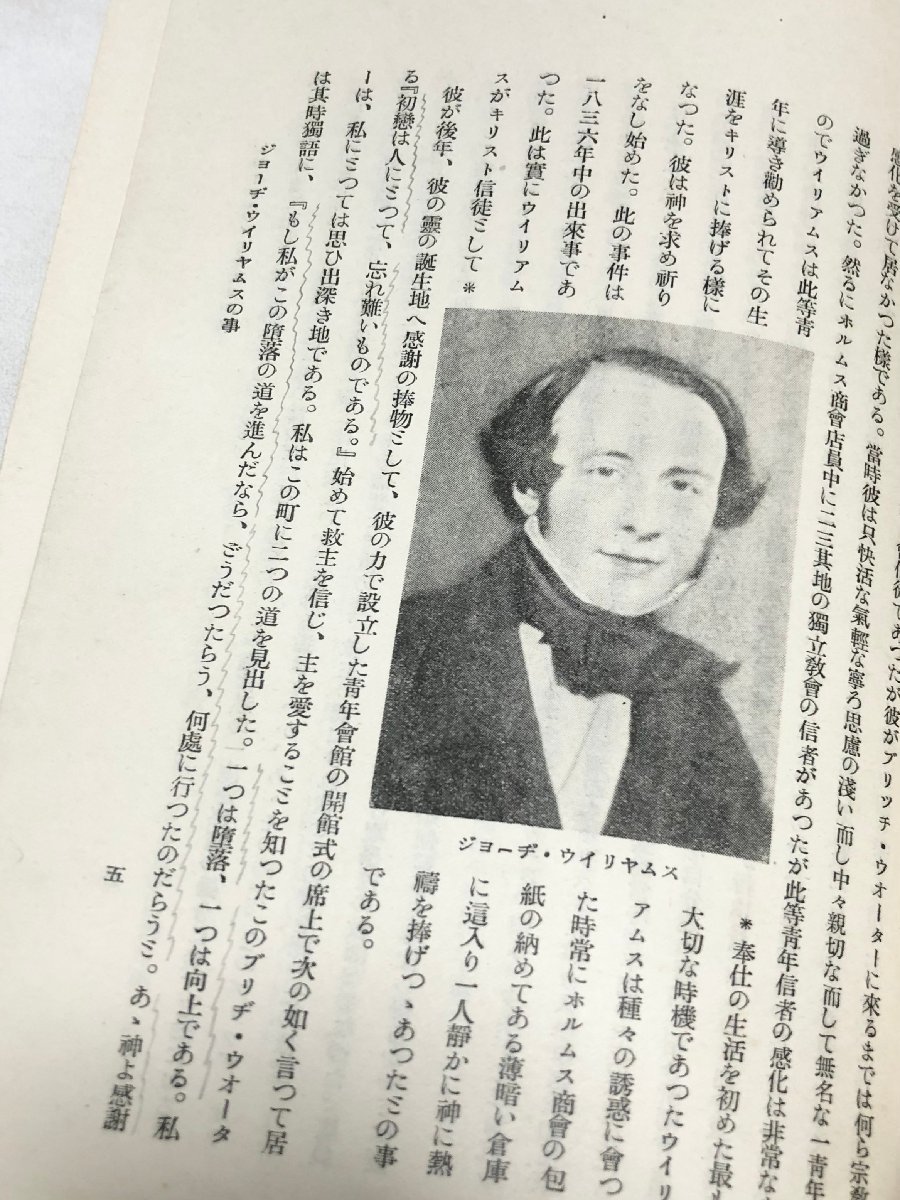 會信徒であつたが彼がブリッチ・ウオーターに來るまでは何ら宗教
感化を受けて居なかつた樣である。當時彼は只快活な氣輕な寧ろ思慮の淺い而し中々親切な而して無名な一青年
過ぎなかつた。然るにホルムス商會店員中に二三其地の獨立教會の信者があつたが此等青年信者の感化は非常な
のでウイリアムスは此等青
年に導き勸められてその生
涯をキリストに捧げる樣に
なつた。彼は神を求め祈り
をなし始めた。此の事件は
一八三六年中の出來事であ
つた。此は實にウイリアム
スがキリスト信徒として＊
ジョーヂ・ウイリヤムス
＊奉仕の生活を初めた最
大切な時機であつたウイリ
アムスは種々の誘惑に會つ
た時常にホルムス商會の包
紙の納めてある薄暗い倉庫
に這入り一人靜かに神に熱
禱を捧げつゝあつたとの事
である。
彼が後年、彼の靈の誕生地へ感謝の捧物として、彼の力で設立した青年會館の開館式の席上で次の如く言つて居
る『初戀は人にとつて、忘れ難いものである。』始めて救主を信じ、主を愛することを知つたこのブリヂ・ウオータ
ーは、私にとつては思ひ出深き地である。私はこの町に二つの道を見出した。一つは墮落、一つは向上である。私
は其時獨語に、『もし私がこの墮落の道を進んだなら、どうだつたらう、何處に行つたのだらうと。あゝ神よ感謝
ジョーヂ・ウイリヤムスの事
五